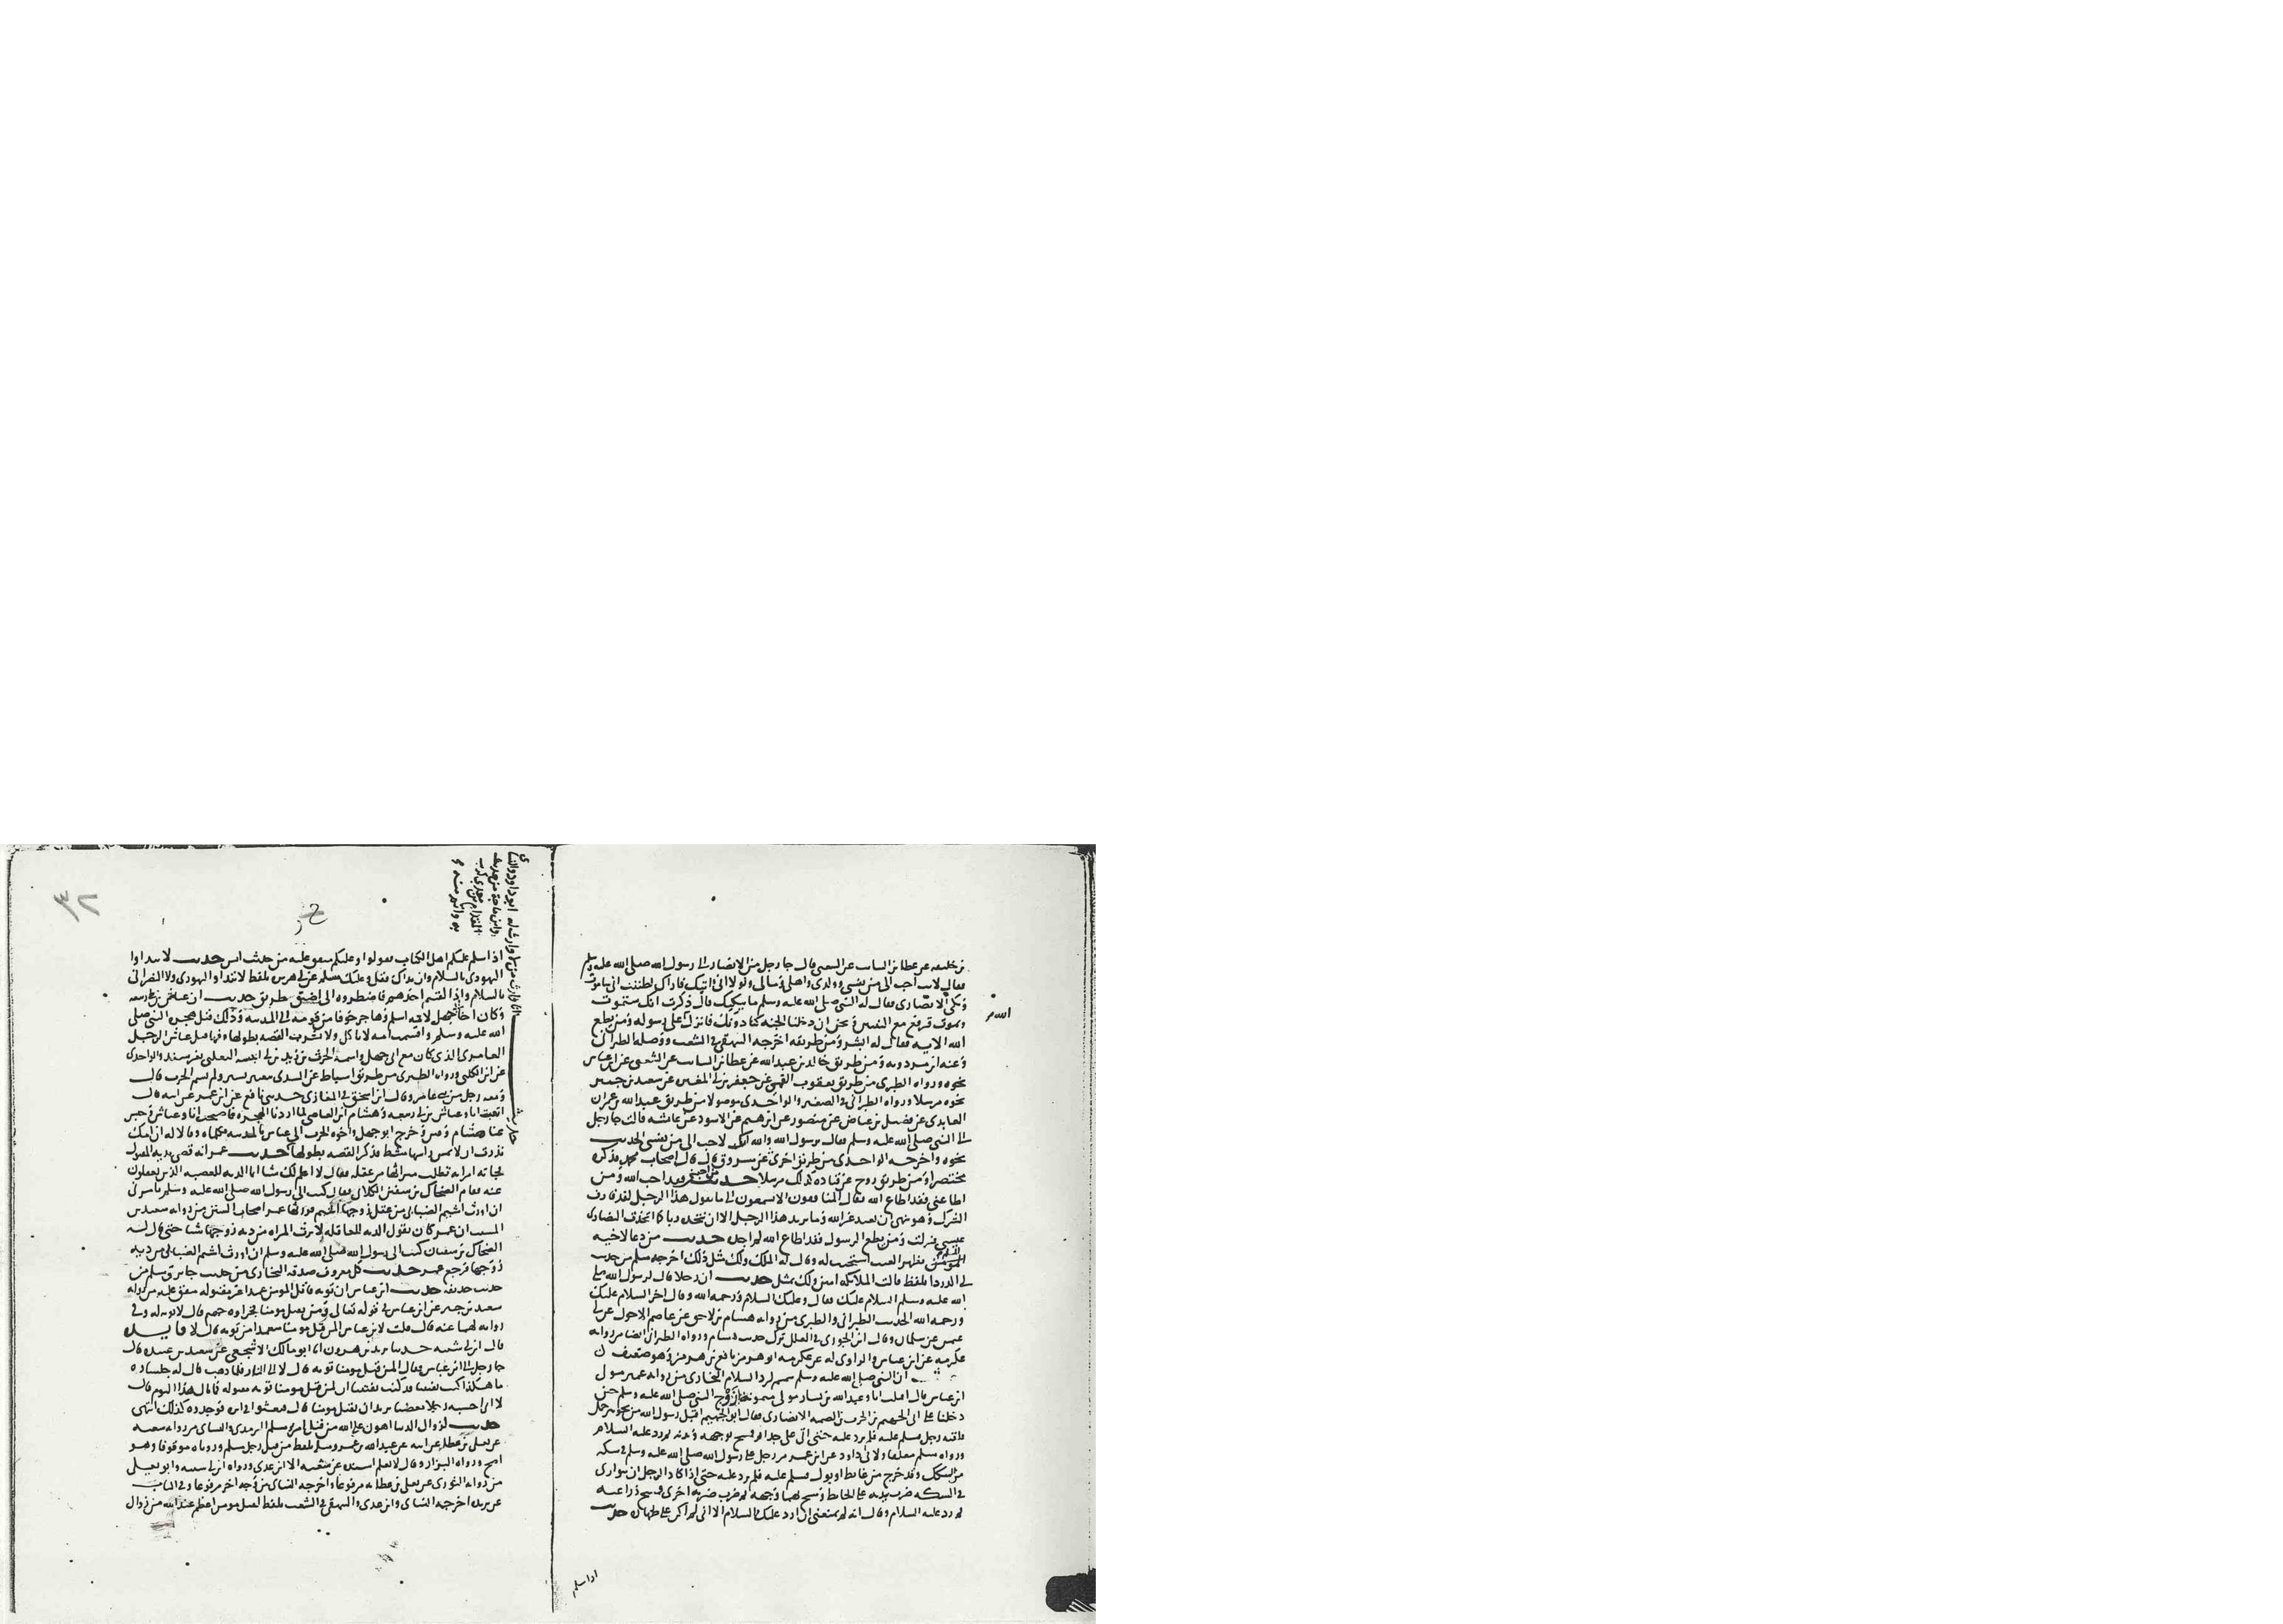 بن خليفه عن عطا بن السايب عن الشعبي قال جا رجل من الانصار الى رسول الله صلى الله عليه وسلم
فقال لانت احب الى من نفسي وولدي واهلي ومالي ولولا اني اتيك فاراك لظننت اني ساموت
وبكى الانصاري فقال له النبي صلى الله عليه وسلم ما يبكيك قال ذكرت انك ستموت
ونموت فترفع مع النبيين ونحن ان دخلنا الجنه كنا دونك فانزل الله على رسوله ومن يطع
الله الايه فقال له ابشر ومن طريقه اخرجه البيهقي في الشعب ووصله الطبراني
وعنه ابن مردويه ومن طريق خالد بن عبد الله عن عطا بن السايب عن الشعبي عن ابن عباس
نحوه ورواه الطبري من طريق يعقوب القمي عن جعفر بن ابي المغيره عن سعيد بن جبير
نحوه مرسلا ورواه الطبراني في الصغير والواحدي موصولا من طريق عبد الله بن عمران
العابدي عن فضيل بن عياض عن منصور عن ابرهيم عن الاسود عن عايشه قالت جا رجل
الى النبي صلى الله عليه وسلم فقال يرسول الله والله انك لاحب الى من نفسي الحديث
نحوه واخرجه الواحدي من طريق اخرى عن مسروق قال قال اصحاب محمد فذكره
مختصرا ومن طريق روح عن قتاده كذلك مرسلا حديث من احبني فقد احب الله ومن
اطاعني فقد اطاع الله فقال المنافقون الا تسمعون الى ما يقول هذا الرجل لقد قارف
الشرك وهو نهى ان نعبد غير الله وما يريد هذا الرجل الا ان نتخذه ربا كما اتخذت النصارى
عيسى فنزلت ومن يطع الرسول فقد اطاع الله لم اجده حديث من دعا لاخيه
المسلم بظهر الغيب استجيب له وقال له الملك ولك مثل ذلك اخرجه مسلم من حديث
ابي الدردا بلفظ قالت الملايكه امين ولك بمثل حديث ان رجلا قال لرسول الله صلى
الله عليه وسلم السلام عليك فقال وعليك السلام ورحمه الله وقال اخر السلام عليك
ورحمه الله الحديث الطبراني والطبري من روايه هشام بن لاحق عن عاصم الاحول عن ابي
عثمن عن سلمان وقال ابن الجوزي في العلل ترك حديث هشام ورواه الطبراني ايضا من روايه
عكرمه عن ابن عباس والراوي له عن عكرمه ابو هرمز نافع بن هرمز وهو ضعيف
حديث ان النبي صلى الله عليه وسلم تيمم لرد السلام البخاري من روايه عمير مولى
ابن عباس قال اقبلت انا وعبد الله بن يسار مولى ميمونه زوج النبي صلى الله عليه وسلم حتى
دخلنا على ابي الجهيم بن الحرث بن الصمه الانصاري فقال ابو الجهيم اقبل رسول الله من نحو بير جمل
فلقيه رجل فسلم عليه فلم يرد عليه حتى اتى على جدار فمسح بوجهه ويديه ثم رد عليه السلام
ورواه مسلم معلقا ولابي داود عن ابن عمر مر رجل على رسول الله صلى الله عليه وسلم في سكه
من السكك وقد خرج من غايط او بول فسلم عليه فلم يرد عليه حتى اذا كاد الرجل ان يتوارى
في السكه ضرب بيديه على الحايط ومسح بهما وجهه ثم ضرب ضربه اخرى فمسح ذراعيه
ثم رد عليه السلام وقال انه لم يمنعني ان ارد عليك السلام الا اني لم اكن على طهاره حديث
اذا سلم
الله
٣٢
انا وارث من لا وارث له ابو داود والنساي
وابن ماجه من حديث
المقدام بن معدي كرب
به واتم منه
حديث
اذا سلم عليكم اهل الكتاب فقولوا وعليكم متفق عليه من حديث انس حديث لا تبداوا
اليهودي بالسلام وان بداك فقل وعليك مسلم عن ابي هريره بلفظ لا تبداوا اليهود ولا النصارى
بالسلام واذا لقيتم احدهم فاضطروه الى اضيق طريق حديث ان عياش بن ابي ربيعه
وكان اخا ابي جهل لامه اسلم وهاجر خوفا من قومه الى المدينه وذلك قبل هجره النبي صلى
الله عليه وسلم واقسمت امه لا تاكل ولا تشرب القصه بطولها وفيها قتل عياش الرجل
العامري الذي كان مع ابي جهل واسمه الحرث بن زيد بن ابي انيسه الثعلبي بغير سند والواحدي
عن ابن الكلبي ورواه الطبري من طريق اسباط عن السدي بتغيير يسير ولم يسم الحرث قال
ومعه رجل من بني عامر وقال ابن اسحق في المغازي حدثني نافع عن ابن عمر عن ابيه قال
اتعدت انا وعياش بن ابي ربيعه وهشام بن العاصي لما اردنا الهجره فاصبحت انا وعياش وحبس
عنا هشام وفتن وخرج ابو جهل واخوه الحرث الى عياش بالمدينه فكلماه وقالا له ان امك
نذرت ان لا يمس راسها مشط فذكر القصه بطولها حديث عمر انه قضى بديه المقتول
فجاته امراه تطلب ميراثها من عقله فقال لا اعلم لك شيا انما الديه للعصبه الذين يعقلون
عنه فقام الضحاك بن سفين الكلابي فقال كتب الى رسول الله صلى الله عليه وسلم يامرني
ان اورث امراه اشيم الضبابي من عقل زوجها اشيم فورثها عمر اصحاب السنن من روايه سعيد بن
المسيب ان عمر كان يقول الديه للعاقله لا ترث المراه من ديه زوجها شيا حتى قال له
الضحاك بن سفيان كتب الى رسول الله صلى الله عليه وسلم ان اورث اشيم الضبابي من ديه
زوجها فرجع عمر حديث كل معروف صدقه البخاري من حديث جابر ومسلم من
حديث حذيفه حديث ابن عباس ان توبه قاتل المومن عمدا غير مقبوله متفق عليه من روايه
سعيد بن جبير عن ابن عباس في قوله تعالى ومن يقتل مومنا فجزاوه جهنم قال لا توبه له وفي
روايه لهما عنه قال قلت لابن عباس المن قتل مومنا متعمدا من توبه قال لا فايده
قال ابن ابي شيبه حدثنا يزيد بن هرون انا ابو مالك الاشجعي عن سعد بن عبيده قال
جا رجل الى ابن عباس فقال المن قتل مومنا توبه قال لا الى النار فلما ذهب قال له جلساوه
ما هكذا كنت تفتينا قد كنت تفتينا ان لمن قتل مومنا توبه مقبوله فما بال هذا اليوم قال
لاني احسبه رجلا مغضبا يريد ان يقتل مومنا قال فبعثوا في اثره فوجدوه كذلك انتهى
حديث لزوال الدنيا اهون على الله من قتل امرئ مسلم الترمذي والنساي من روايه شعبه
عن يعلى بن عطا عن ابيه عن عبد الله بن عمرو وسلم بلفظ من قتل رجل مسلم وروياه موقوفا وهو
اصح ورواه البزار وقال لا نعلم اسنده عن شعبه الا ابن عدي ورواه ابن ابي شيبه وابو يعلى
من روايه الثوري عن يعلى بن عطا به مرفوعا واخرجه النساي من وجه اخر مرفوعا وفي الباب
عن بريده اخرجه النساي وابن عدي والبيهقي في الشعب بلفظ لقتل مومن اعظم عند الله من زوال